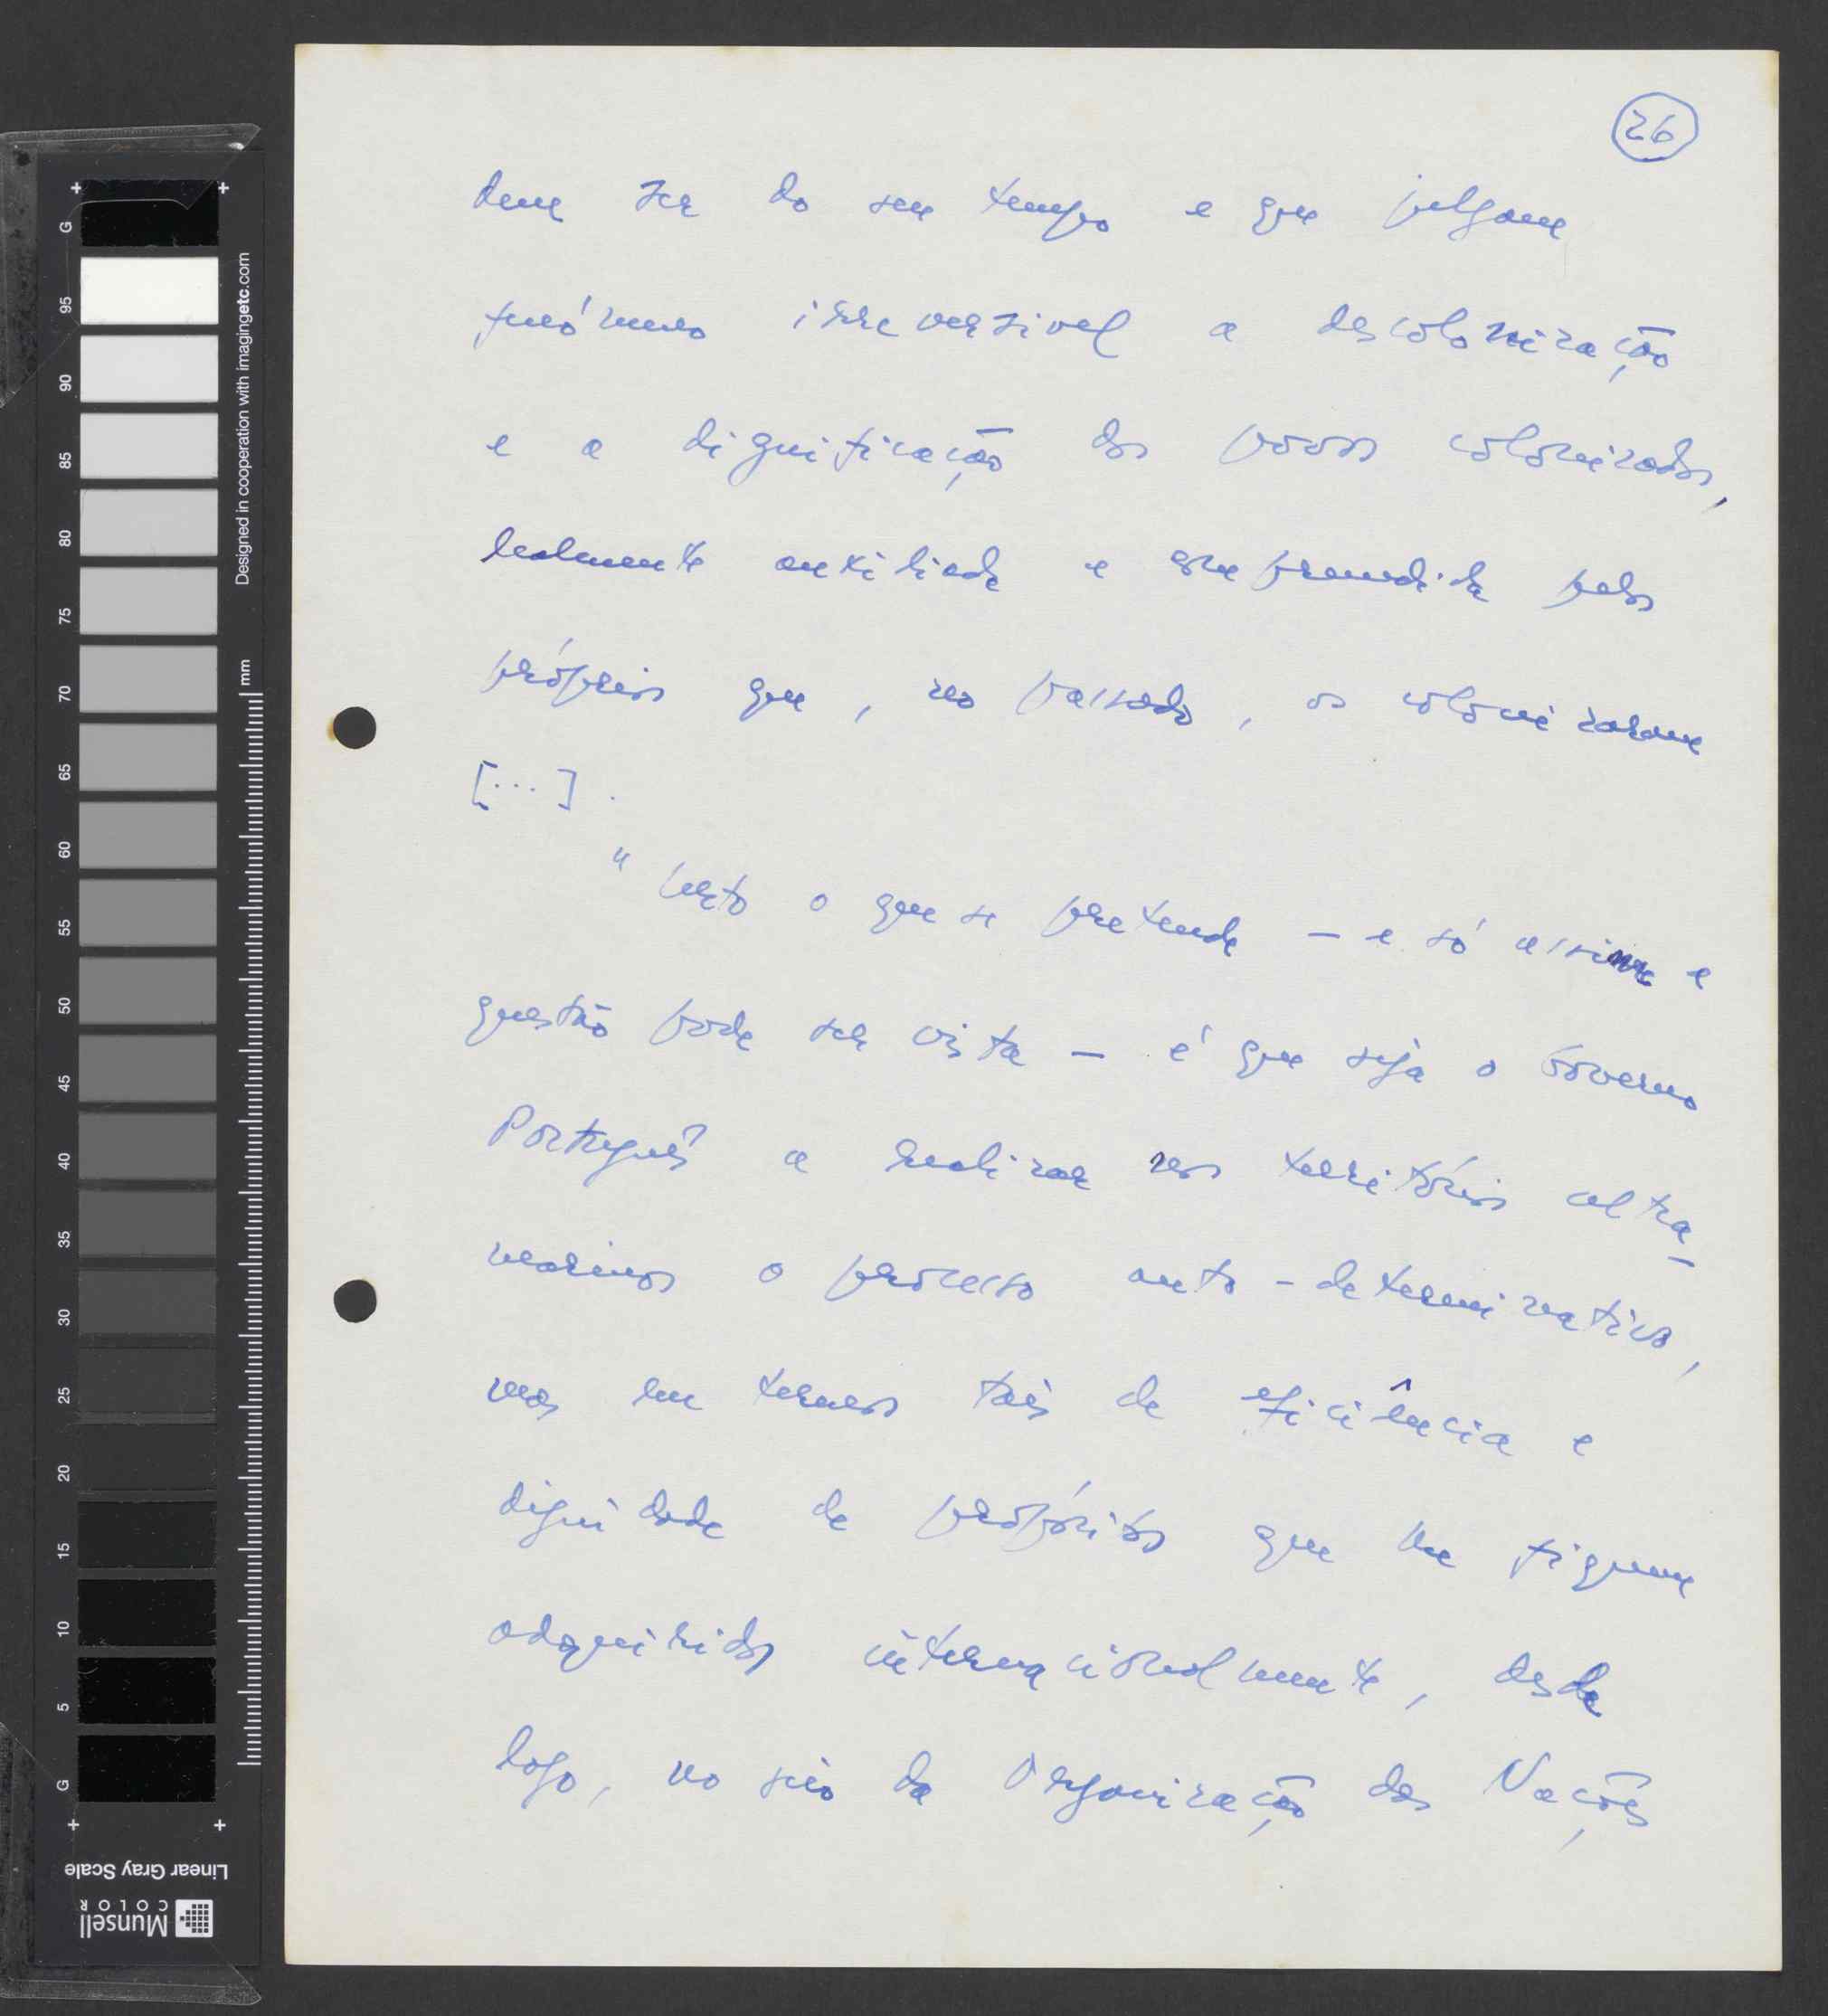 26
dem ser do seu tempo e que julgam
fenómeno irreversivel a descolonização
e a dignificação dos povos colonizados,
lealmente auxiliada e compreendida pelos
próprios que, no passado, os colonizaram
[...].
" Certo o que se pretende - e só assim a
questão pode ser vista - é que seja o Governo
Português a realizar nos territórios ultra-
marinos o processo auto-determinativo,
mas em termos tais de eficiência e
dignidade de propósitos que lhe fiquem
adquiridos internacionalmente, desde
logo, no seio da Organização das Nações
G 95 90 85 80 75 70 65 60 55 50 45 40 35 30 25 20 15 10 5 G
mm
Designed in cooperation with imagingetc.com
Linear Gray Scale
Munsell
COLOR